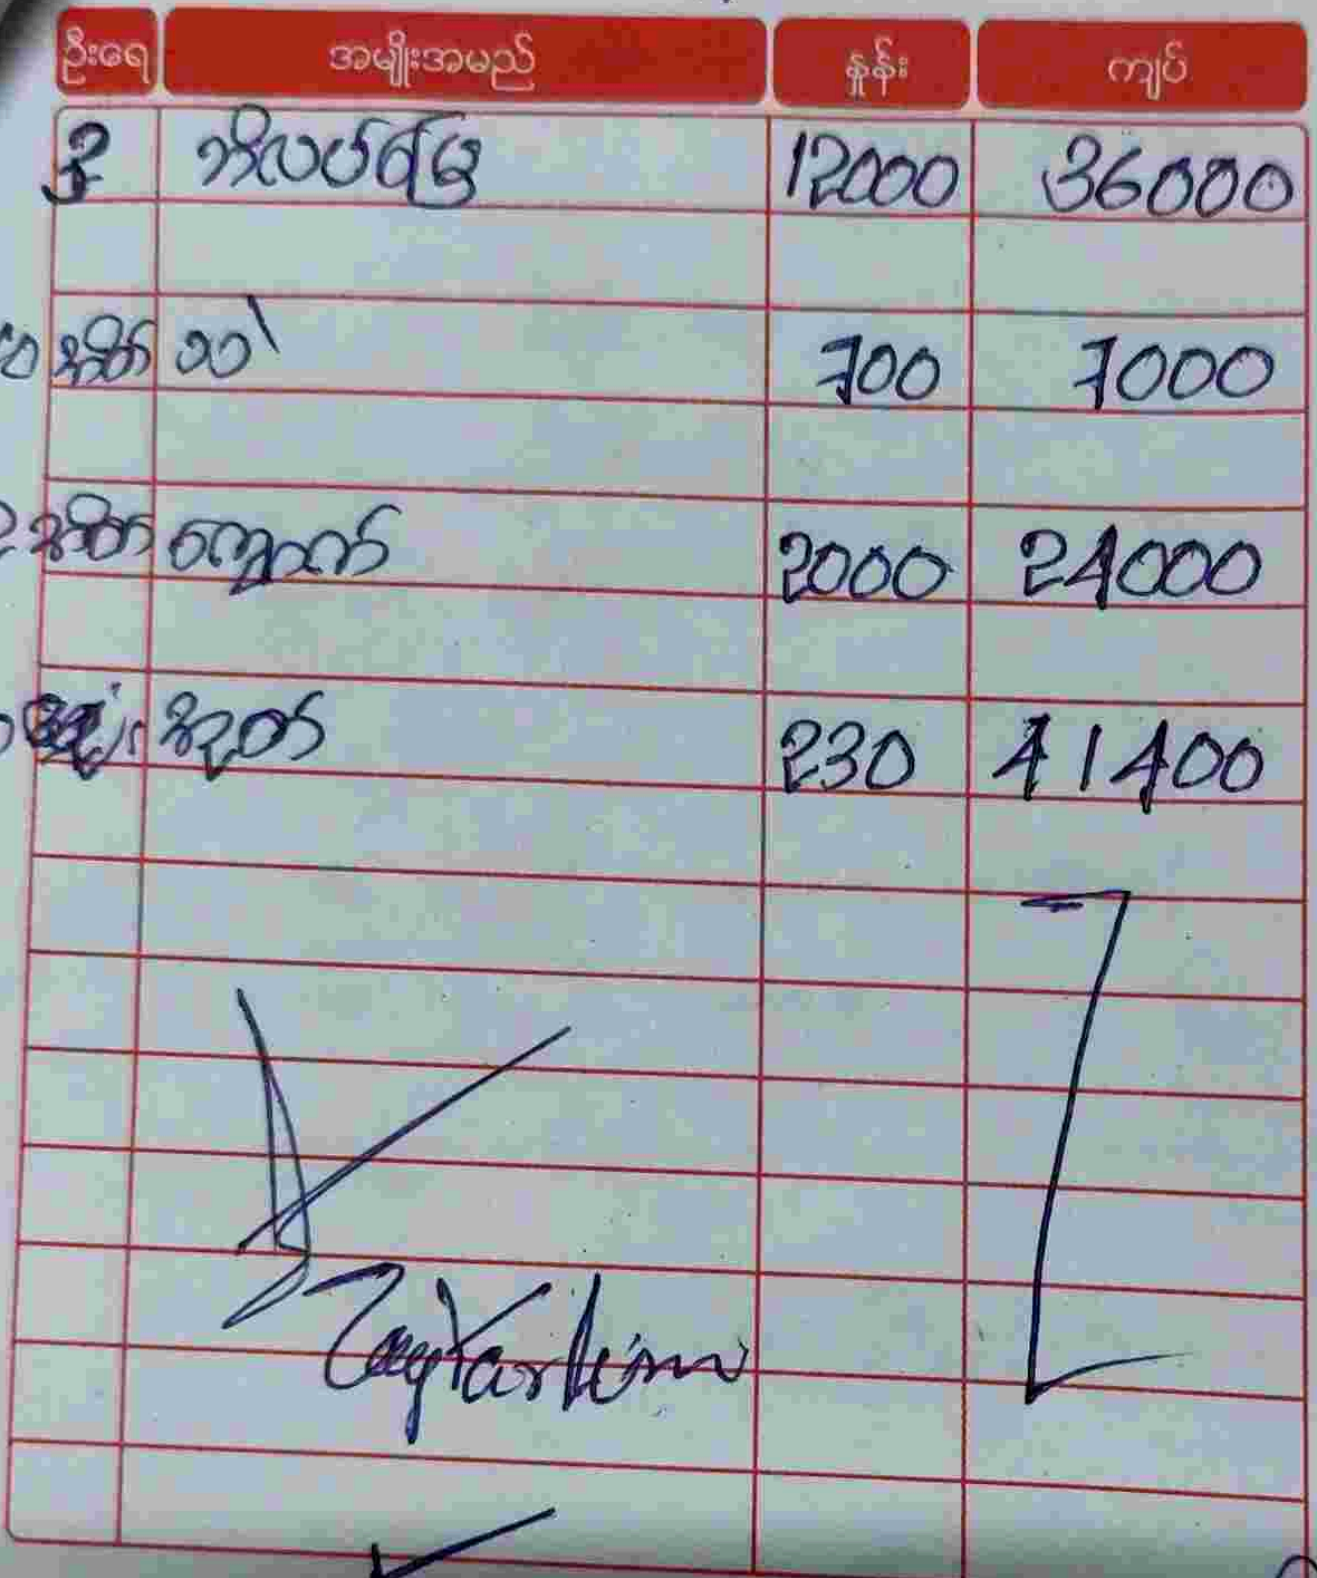 ဦးရေ အမျိုးအမည် နှုန်း ကျပ်
3 ဘိလပ်မြေ 12000 36000
အိတ် သဲ 700 7000
အိတ် ကျောက် 2000 24000
အုတ် 230 41400